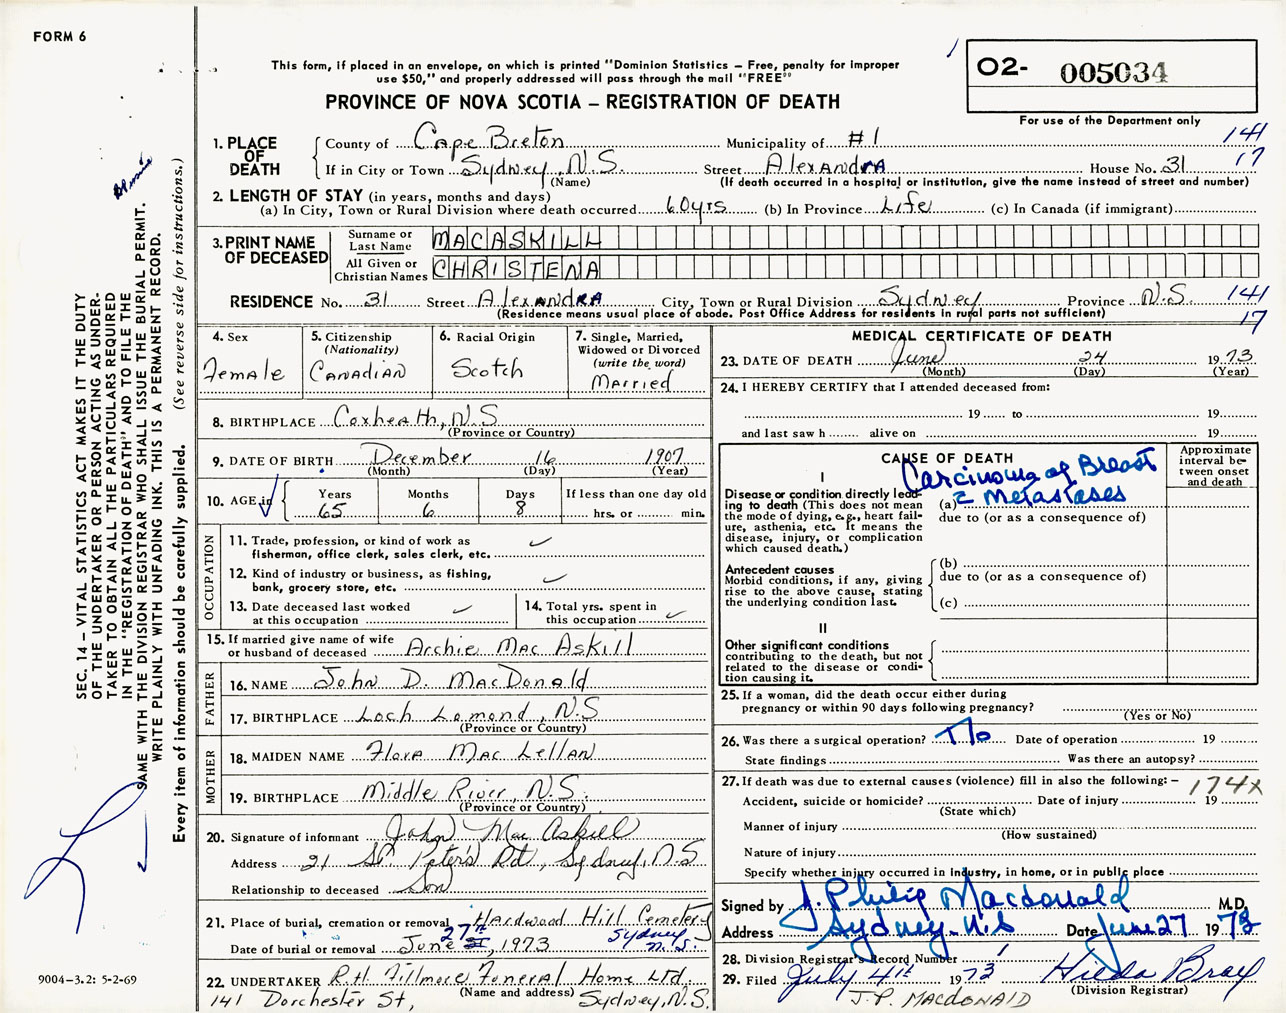 FORM 6
This form, if placed in an envelope, on which is printed "Dominion Statistics – Free, penalty for improper
use $50," and properly addressed will pass through the mail "FREE"
PROVINCE OF NOVA SCOTIA – REGISTRATION OF DEATH
02- 005034
For use of the Department only
1. PLACE OF DEATH
County of Cape Breton Municipality of #1 141
If in City or Town Sydney, N.S. Street Alexandra House No. 31 17
(Name) (If death occurred in a hospital or institution, give the name instead of street and number)
2. LENGTH OF STAY (in years, months and days)
(a) In City, Town or Rural Division where death occurred 60 yrs (b) In Province Life (c) In Canada (if immigrant)
3. PRINT NAME OF DECEASED
Surname or Last Name MACASKILL
All Given or Christian Names CHRISTENA
RESIDENCE No. 31 Street Alexandra City, Town or Rural Division Sydney Province N.S. 141
(Residence means usual place of abode. Post Office Address for residents in rural parts not sufficient) 17
4. Sex
Female
5. Citizenship
(Nationality)
Canadian
6. Racial Origin
Scotch
7. Single, Married,
Widowed or Divorced
(write the word)
Married
8. BIRTHPLACE Coxheath, N.S
(Province or Country)
9. DATE OF BIRTH December 16 1907
(Month) (Day) (Year)
10. AGE in
Years Months Days If less than one day old
65 6 8 hrs. or min.
OCCUPATION
11. Trade, profession, or kind of work as
fisherman, office clerk, sales clerk, etc.
12. Kind of industry or business, as fishing,
bank, grocery store, etc.
13. Date deceased last worked
at this occupation
14. Total yrs. spent in
this occupation
15. If married give name of wife
or husband of deceased Archie Mac Askill
FATHER
16. NAME John D. MacDonald
17. BIRTHPLACE Loch Lomond, N.S
(Province or Country)
MOTHER
18. MAIDEN NAME Flora Mac Lellan
19. BIRTHPLACE Middle River, N.S.
(Province or Country)
20. Signature of informant John Mac Askill
Address 21 St Peter's Rd, Sydney, N.S
Relationship to deceased Son
21. Place of burial, cremation or removal Hardwood Hill Cemetery
Sydney
N.S.
Date of burial or removal June 27th, 1973
22. UNDERTAKER R.H. Fillmore Funeral Home Ltd.
(Name and address)
141 Dorchester St, Sydney, N.S.
MEDICAL CERTIFICATE OF DEATH
23. DATE OF DEATH June 24 1973
(Month) (Day) (Year)
24. I HEREBY CERTIFY that I attended deceased from:
19 to 19
and last saw h alive on 19
CAUSE OF DEATH
Approximate
interval be-
tween onset
and death
I
Carcinoma of Breast
Disease or condition directly lead-
ing to death (This does not mean
the mode of dying, e.g., heart fail-
ure, asthenia, etc. It means the
disease, injury, or complication
which caused death.)
(a) c Metastases
due to (or as a consequence of)
Antecedent causes
Morbid conditions, if any, giving
rise to the above cause, stating
the underlying condition last.
(b)
due to (or as a consequence of)
(c)
II
Other significant conditions
contributing to the death, but not
related to the disease or condi-
tion causing it.
25. If a woman, did the death occur either during
pregnancy or within 90 days following pregnancy?
(Yes or No)
26. Was there a surgical operation? No Date of operation 19
State findings Was there an autopsy?
27. If death was due to external causes (violence) fill in also the following:– 174x
Accident, suicide or homicide? Date of injury 19
(State which)
Manner of injury
(How sustained)
Nature of injury
Specify whether injury occurred in industry, in home, or in public place
Signed by J. Philip Macdonald M.D.
Address Sydney N.S Date June 27 1973
28. Division Registrar's Record Number 1
29. Filed July 4th 1973 Hilda Bray
(Division Registrar)
J.P. MACDONALD
SEC. 14 – VITAL STATISTICS ACT MAKES IT THE DUTY
OF THE UNDERTAKER OR PERSON ACTING AS UNDER-
TAKER TO OBTAIN ALL THE PARTICULARS REQUIRED
IN THE "REGISTRATION OF DEATH" AND TO FILE THE
SAME WITH THE DIVISION REGISTRAR WHO SHALL ISSUE THE BURIAL PERMIT.
WRITE PLAINLY WITH UNFADING INK. THIS IS A PERMANENT RECORD.
Every item of information should be carefully supplied. (See reverse side for instructions.)
9004-3.2: 5-2-69